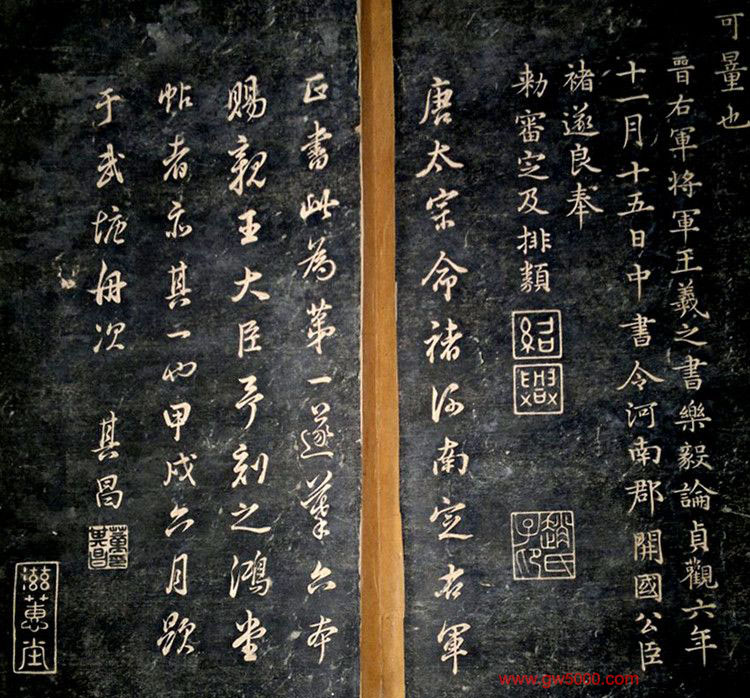 可量也
晉右軍將軍王羲之書樂毅論貞觀六年
十一月十五日中書令河南郡開國公臣
褚遂良奉
勅審定及排類
紹
興
唐太宗命褚河南定右軍
正書此為第一遂摹六本
賜親王大臣予刻之鴻堂
帖者亦其一也甲戌六月題
于武塘舟次 其昌
滋蕙堂
www.gw5000.com